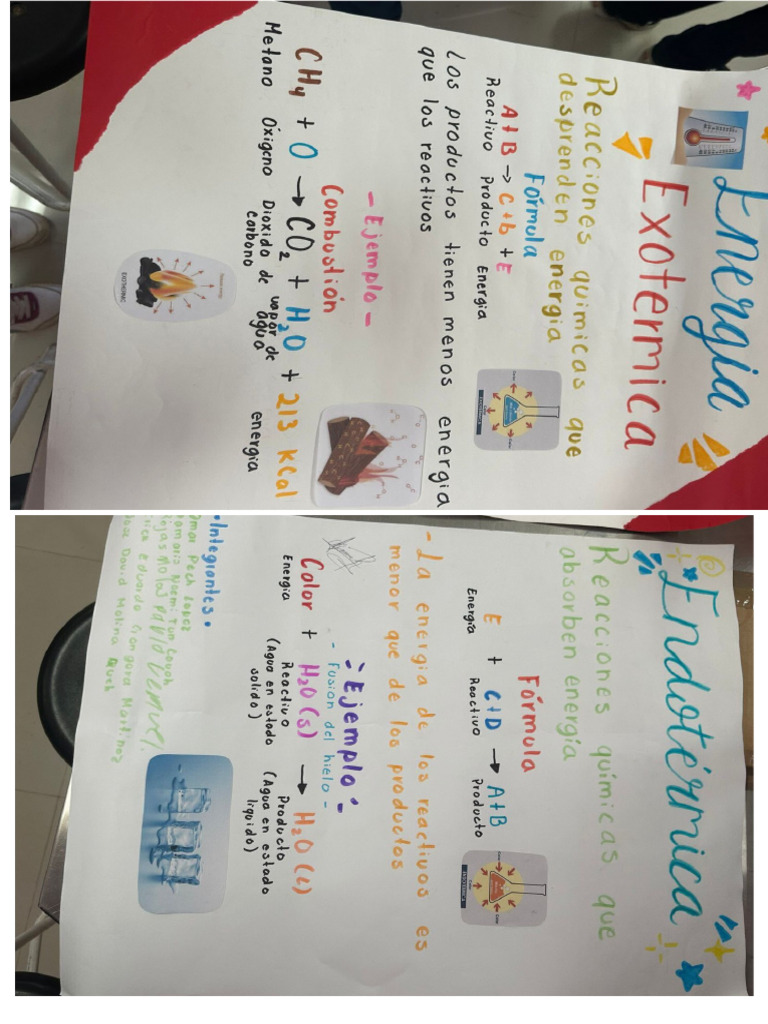 Energia
Exotermica
Reacciones quimicas que
desprenden energia
Fórmula
A+B → C+b + E
Reactivo Producto Energia
Los productos tienen menos energia
que los reactivos
- Ejemplo -
Combustión
CH4 + O → CO2 + H2O + 213 KCal
Metano Óxigeno Dioxido de carbono vapor de agua energia
EXOTHERMIC
Endotérmica
Reacciones químicas que
absorben energía
Fórmula
E + C+D → A+B
Energía Reactivo Producto
- La energia de los reactivos es
menor que de los productos
- Ejemplo -
- Fusion del hielo -
Calor + H2O (s) → H2O (L)
Energia Reactivo Producto
(Agua en estado solido) (Agua en estado liquido)
• Integrantes •
Pech Lopez
Noemi Tun
Eduardo Gongora Martinez
David Molina